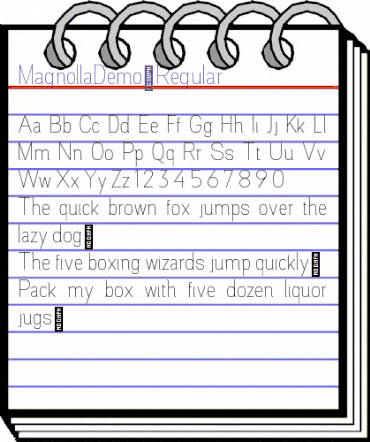 MagnollaDemo Regular
Aa Bb Cc Dd Ee Ff Gg Hh Ii Jj Kk Ll
Mm Nn Oo Pp Qq Rr Ss Tt Uu Vv
Ww Xx Yy Zz 1 2 3 4 5 6 7 8 9 0
The quick brown fox jumps over the
lazy dog
The five boxing wizards jump quickly
Pack my box with five dozen liquor
jugs